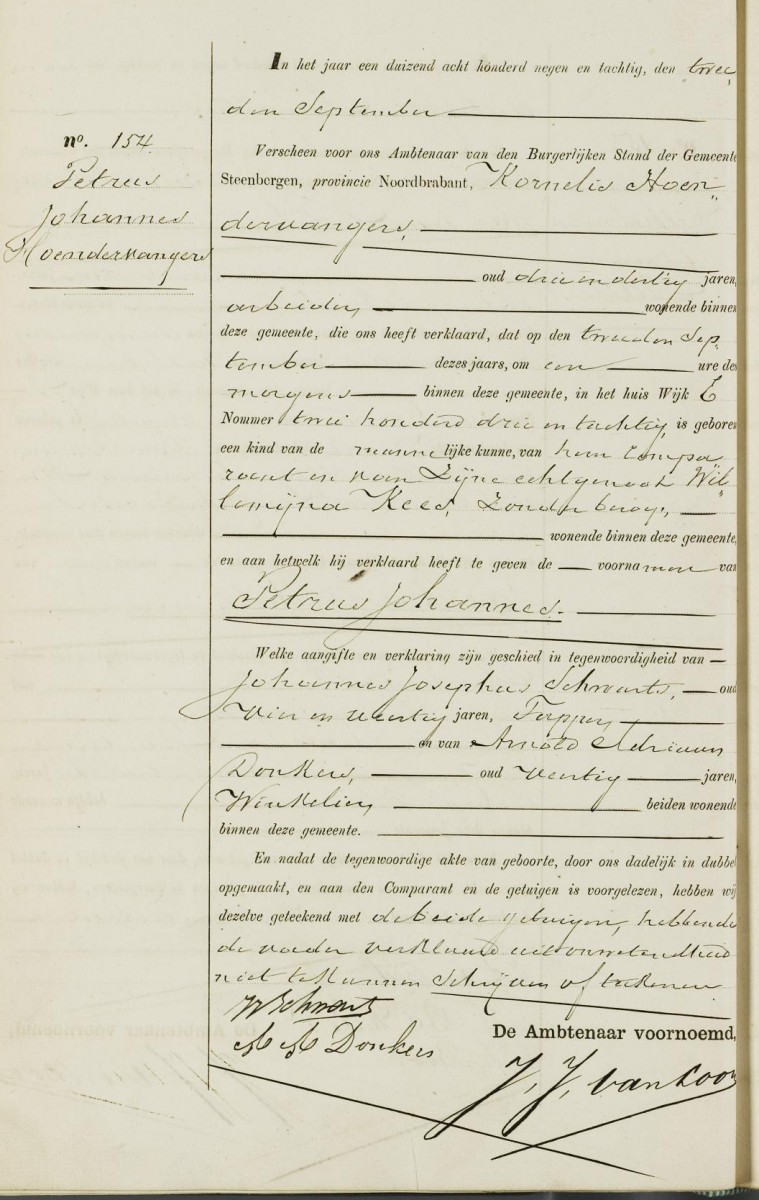 no. 154
Petrus
Johannes
Hoendervangers
In het jaar een duizend acht honderd negen en tachtig, den twee
den September
Verscheen voor ons Ambtenaar van den Burgerlijken Stand der Gemeente
Steenbergen, provincie Noordbrabant, Kornelis Hoen„
dervangers,
oud drie en dertig jaren,
arbeider, wonende binnen
deze gemeente, die ons heeft verklaard, dat op den tweeden Sep„
tember dezes jaars, om een ure des
morgens binnen deze gemeente, in het huis Wijk E
Nommer twee honderd drie en tachtig, is geboren
een kind van de mannelijke kunne, van hem Compa
rant en van Zijne echtgenoot Wil„
lemijna Kees, Zonder beroep,
wonende binnen deze gemeente,
en aan hetwelk hij verklaard heeft te geven de voornamen van
Petrus Johannes.
Welke aangifte en verklaring zijn geschied in tegenwoordigheid van
Johannes Josephus Schwarts, oud
Vier en veertig jaren, Tapper,
en van Arnold Adriaan
Donkers, oud Veertig jaren,
Winkelier, beiden wonende
binnen deze gemeente.
En nadat de tegenwoordige akte van geboorte, door ons dadelijk in dubbel
opgemaakt, en aan den Comparant en de getuigen is voorgelezen, hebben wij
dezelve geteekend met de beide getuigen, hebbende
de vader verklaard uit onwetendheid
niet te kunnen Schrijven of teekenen
Schwarts
A A Donkers
De Ambtenaar voornoemd,
J. J. van Loon